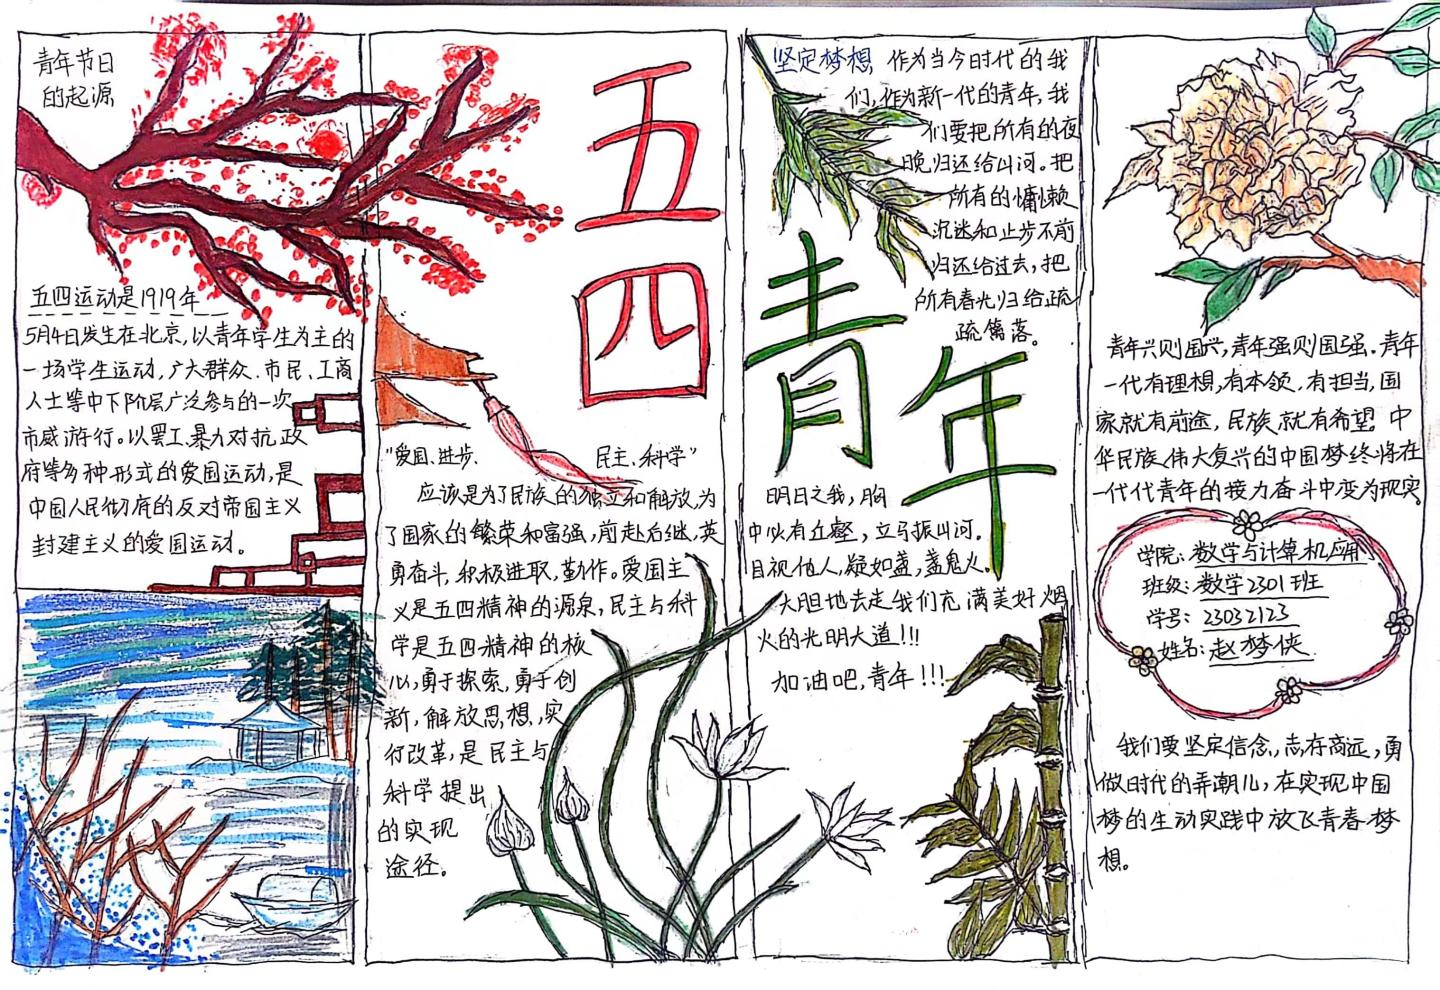 青年节日
的起源
五四运动是1919年
5月4日发生在北京,以青年学生为主的
一场学生运动,广大群众、市民、工商
人士等中下阶层广泛参与的一次
市威游行。以罢工、暴力对抗政
府等多种形式的爱国运动,是
中国人民彻底的反对帝国主义
封建主义的爱国运动。
五四
"爱国、进步、民主、科学"
应该是为了民族的独立和解放,为
了国家的繁荣和富强,前赴后继,英
勇奋斗,积极进取,勤作。爱国主
义是五四精神的源泉,民主与科
学是五四精神的核
心,勇于探索,勇于创
新,解放思想,实
行改革,是民主与
科学提出
的实现
途径。
青年
坚定梦想 作为当今时代的我
们,作为新一代的青年,我
们要把所有的夜
晚归还给山河。把
所有的慵懒
沉迷和止步不前
归还给过去,把
所有春光归给疏
疏篱落。
明日之我,胸
中必有丘壑,立马振山河。
目视他人,疑如盏,盏鬼火。
大胆地去走我们充满美好烟
火的光明大道!!!
加油吧,青年!!!
青年兴则国兴,青年强则国强。青年
一代有理想,有本领,有担当,国
家就有前途,民族就有希望。中
华民族伟大复兴的中国梦终将在
一代代青年的接力奋斗中变为现实。
学院:数学与计算机应用
班级:数学2301班
学号:23032123
姓名:赵梦侠
我们要坚定信念,志存高远,勇
做时代的弄潮儿,在实现中国
梦的生动实践中放飞青春梦
想。